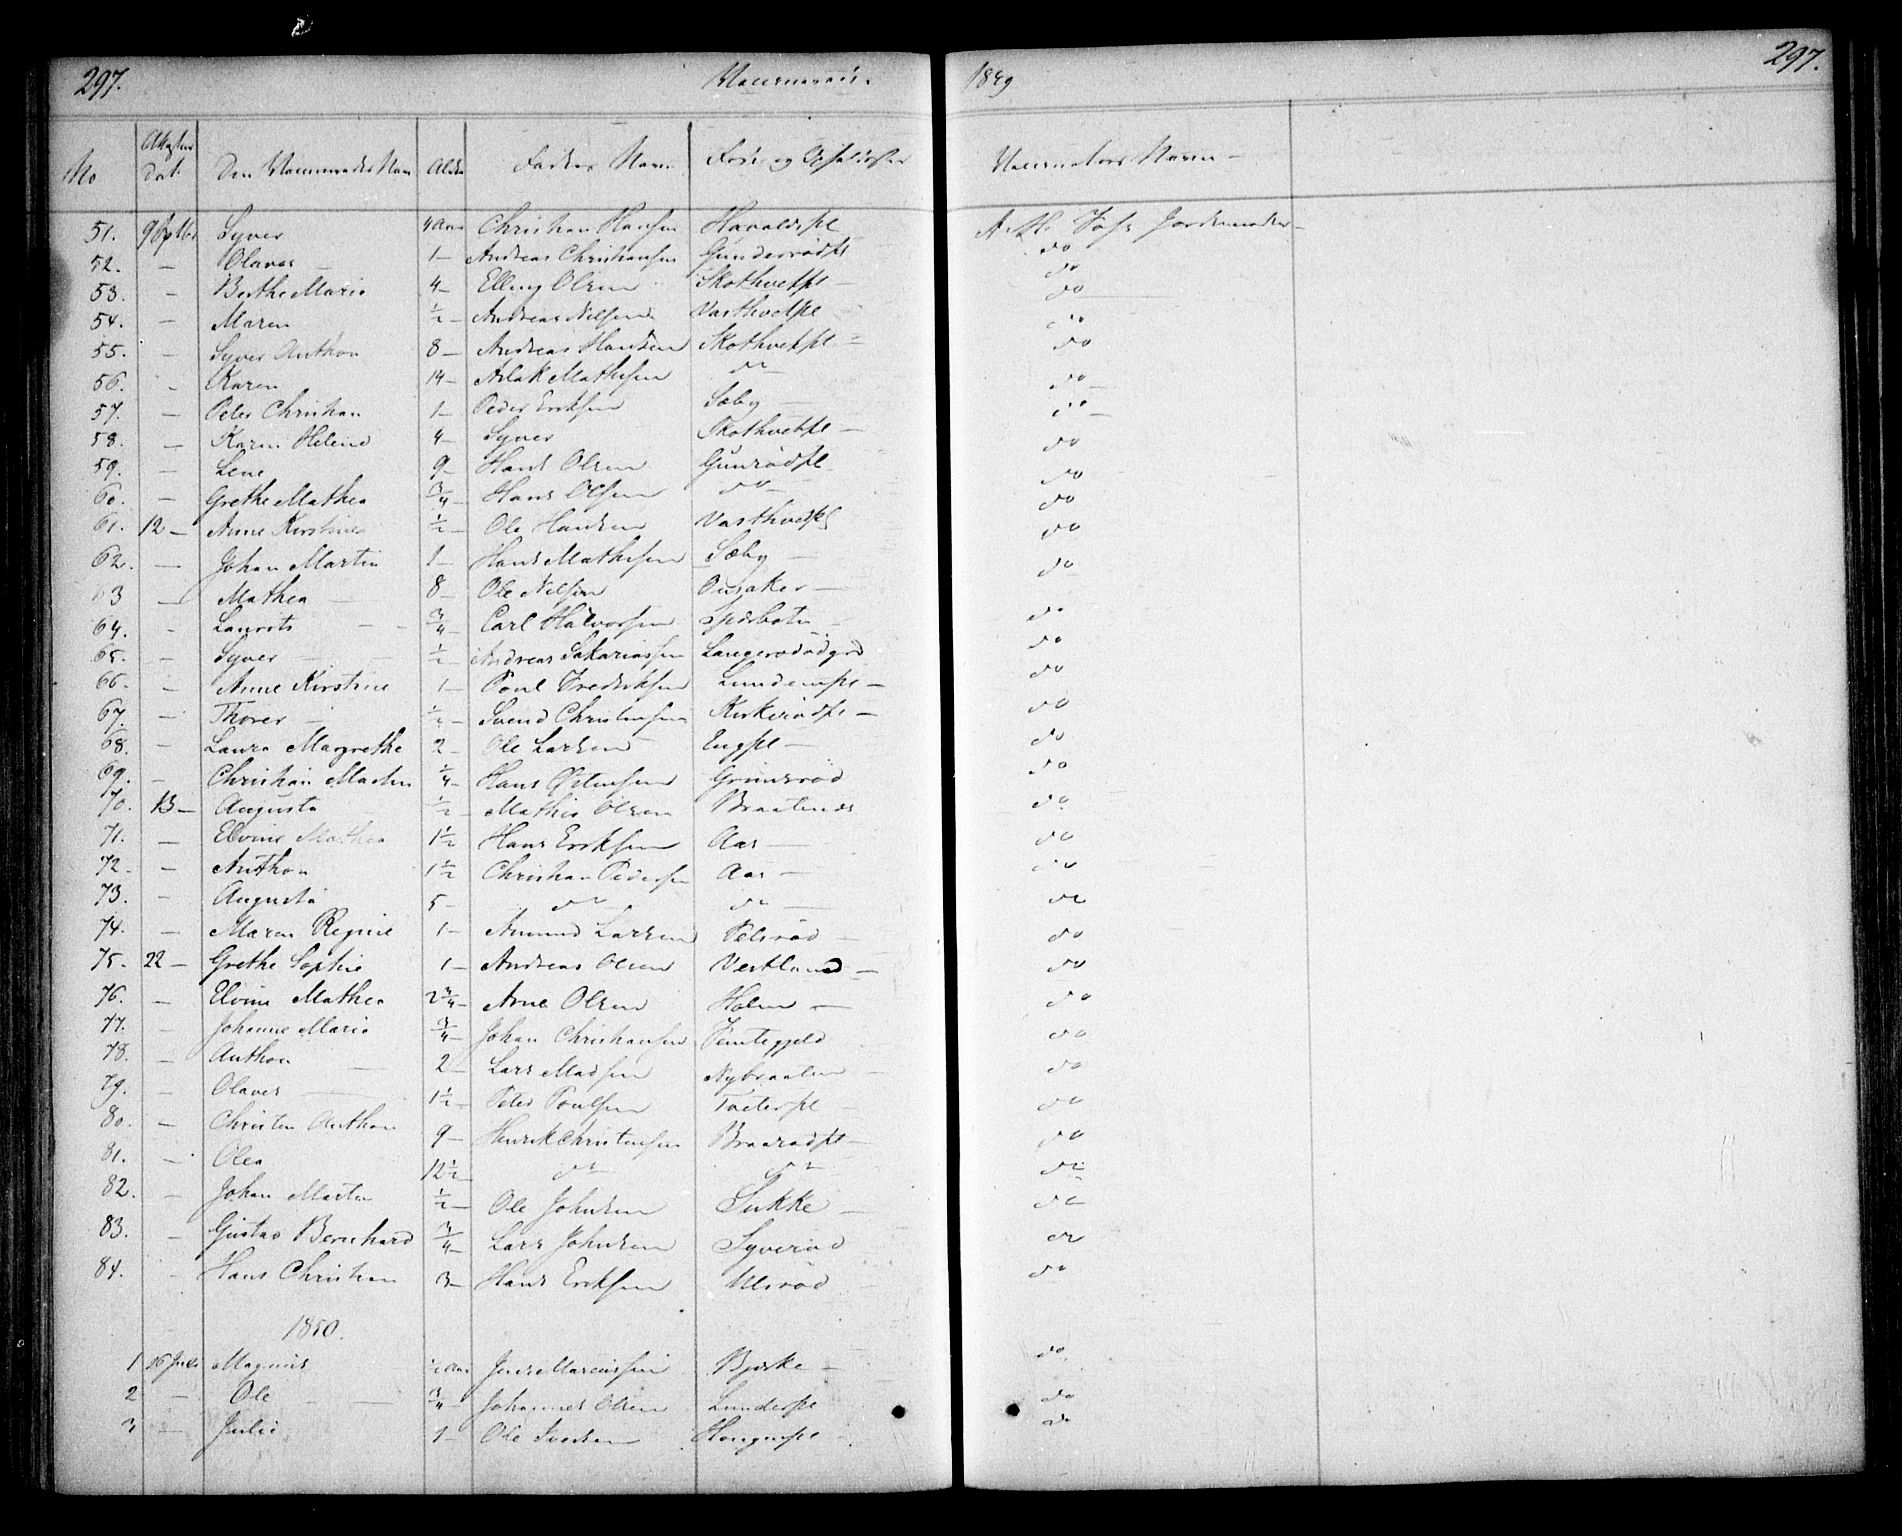 297. 1849 297.
No Den Vaccineredes Navn Alder Fadres Navn Føde og Opholdssted Vaccinators Navn
51. 9 Syver 4 Aar Christian Hansen Havaldspl Jordemoder
52. — Olaves 1 — Andreas Christiansen Gunderrødpl do
53. — Berthe Marie 4 — Elling Olsen Skothvetpl — do
54. — Maren ½ — Andreas Nilsen Vasthvetpl do
55. — Syver Anthon 8 — Andreas Hansen Skothvetpl do
56. — Karen 14 — Aslak Mathisen do do
57. — Peder Christian 1 — Peder Eriksen Sæby — do
58. — Karen Helene 4 — Syver Skothvetpl — do
59. — Lene 9 — Hans Olsen Gunrødpl do
60. — Grethe Mathea ¾ — Hans Olsen do do
61. 12 — Anne Kirstine ½ — Ole Hansen Vasthvetpl do
62. — Johan Martin 1 — Hans Mathisen Sæby — do
63 — Mathea — 8 — Ole Nilsen Onsaker — do
64. — Laurits — ¾ — Carl Halvorsen Spærbotn — do
65. — Syver ½ — Andreas Sakariassen Langerødødgrd do
66. — Anne Kirstine 1 — Poul Fredriksen Lundempl — do
67. — Thorer — ½ — Svend Christensen Kirkerødpl — do
68. — Laura Margrethe 2 — Ole Larsen Engpl — do
69. — Christian Martin ¼ — Hans Grimsrød do
70. 13 — Augusta ½ — Mathis Olsen Braatunds do
71. — Elvine Mathea 1½ Hans Eriksen Aas — do
72. — Anthon 1½ Christian Pedersen Aas — do
73. — Augusta 5 — do do — do
74. — Maren Regine 1 — Amund Larsen Pelsrød — do
75. 22 — Grethe Sophie 1 — Andreas Olsen Vestlund — do
76. — Elvine Mathea 2¾ — Arne Olsen Holm — do
77. — Johanne Marie ¾ — Johan Christiansen do
78. — Anthon 2 — Lars Madsen Nybraaten — do
79. — Olaves — 1½ — Peder Poulsen Tveterpl — do
80. — Christen Anthon 9 — Henrik Christensen Braarødpl — do
81. — Olea 12½ do do do
82. — Johan Martin ½ — Ole Johnsen Sukke — do
83. — Gustav Bernhard ¾ — Lars Johnsen Syverød do
84. — Hans Christian 3 — Hans Eriksen Ulsrød do
1850.
1 16 Juli Magnus ½ Aar Jens Marcussen Bjerke — do
2 — Ole — ¾ — Johannes Olsen Lunderpl do
3 — Julie 1 — Ole Haugenpl — do